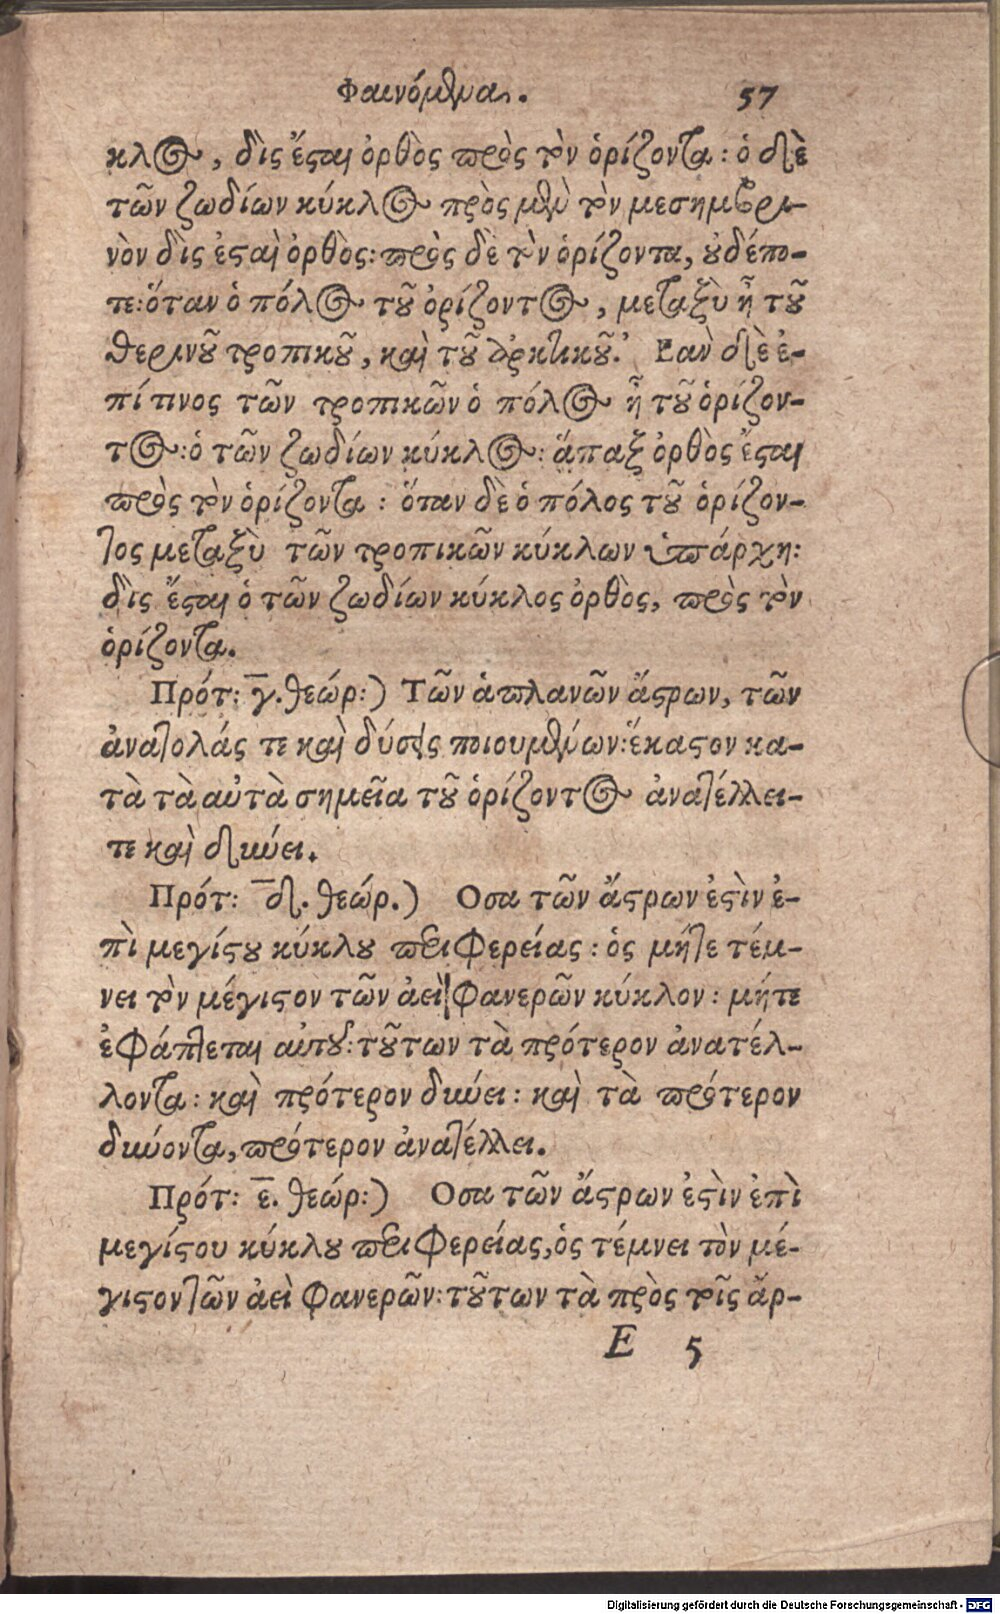 Φαινόμενα. 57
κλος, δὶς ἔσται ὀρθὸς πρὸς τὸν ὁρίζοντα: ὁ δὲ
τῶν ζωδίων κύκλος πρὸς μὲν τὸν μεσημβρι-
νὸν δὶς ἐσαὶ ὀρθὸς: πρὸς δὲ τὸν ὁρίζοντα, οὐδέπο-
τε: ὅταν ὁ πόλος τοῦ ὁρίζοντος, μεταξὺ ᾖ τοῦ
θερινοῦ τροπικοῦ, καὶ τοῦ ἀρκτικοῦ. Εαν δὲ ἐ-
πί τινος τῶν τροπικῶν ὁ πόλος ᾖ τοῦ ὁρίζον-
τος: ὁ τῶν ζωδίων κύκλος: ἅπαξ ὀρθὸς ἔσται
πρὸς τὸν ὁρίζοντα: ὅταν δὲ ὁ πόλος τοῦ ὁρίζον-
τος μεταξὺ τῶν τροπικῶν κύκλων ὑπάρχη:
δὶς ἔσται ὁ τῶν ζωδίων κύκλος ὀρθὸς, πρὸς τὸν
ὁρίζοντα.
Πρότ: γ̅. θεώρ:) Τῶν ἀπλανῶν ἄστρων, τῶν
ἀνατολάς τε καὶ δύσεις ποιουμένων: ἕκαστον κα-
τὰ τὰ αὐτὰ σημεῖα τοῦ ὁρίζοντος ἀνατέλλει-
τε καὶ δύνει.
Πρότ: δ̅. θεώρ.) Οσα τῶν ἄστρων ἐστὶν ἐ-
πὶ μεγίστου κύκλου περιφερείας: ὃς μήτε τέμ-
νει τὸν μέγιστον τῶν ἀεὶ φανερῶν κύκλον: μήτε
ἐφάπτεται αὐτοῦ: τούτων τὰ πρότερον ἀνατέλ-
λοντα: καὶ πρότερον δύνει: καὶ τὰ πρότερον
δύνοντα, πρότερον ἀνατέλλει.
Πρότ: ε̅. θεώρ:) Οσα τῶν ἄστρων ἐστὶν ἐπὶ
μεγίστου κύκλου περιφερείας, ὃς τέμνει τὸν μέ-
γιστον τῶν ἀεὶ φανερῶν: τούτων τὰ πρὸς τοῖς ἄρ-
E 5
Digitalisierung gefördert durch die Deutsche Forschungsgemeinschaft - DFG